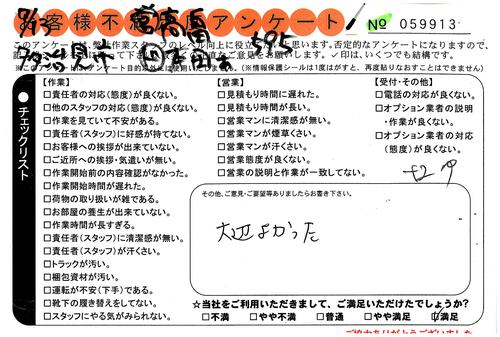 お客様不満度アンケート
№ 059913
このアンケートは、弊社作業スタッフのレベル向上に役立
思います。否定的なアンケートになりますので、
ご意見をお願いします。✓印は、いくつでも結構です。
※このアンケートはアンケート目的以外には使用いたしません。(※情報保護シールは1度がはすと、再度貼りなおすことはできません)
595
チェックリスト
【作業】
□責任者の対応(態度)が良くない。
□他のスタッフの対応(態度)が良くない。
□作業を見ていて不安がある。
□責任者(スタッフ)に好感が持てない。
□お客様への挨拶が出来ていない。
□ご近所への挨拶・気遣いが無い。
□作業開始前の内容確認がなかった。
□作業開始時間が遅れた。
□荷物の取り扱いが雑である。
□お部屋の養生が出来ていない。
□作業時間が長すぎる。
□責任者(スタッフ)に清潔感が無い。
□責任者(スタッフ)が汗くさい。
□トラックが汚い。
□梱包資材が汚い。
□運転が不安(下手)である。
□靴下の履き替えをしてない。
□スタッフにやる気がみられない。
【営業】
□見積もり時間に遅れた。
□見積もり時間が長い。
□営業マンに清潔感が無い。
□営業マンが煙草くさい。
□営業マンが汗くさい。
□営業態度が良くない。
□営業の説明と作業が一致してない。
【受付・その他】
□電話の対応が良くない。
□オプション業者の説明
・作業が良くない。
□オプション業者の対応
(態度)が良くない。
その他、ご意見・ご要望等ありましたらお書き下さい。
大変よかった
☆当社をご利用いただきまして、ご満足いただけたでしょうか?
□不満 □やや不満 □普通 □やや満足 ☑満足
ご協力ありがとうございました